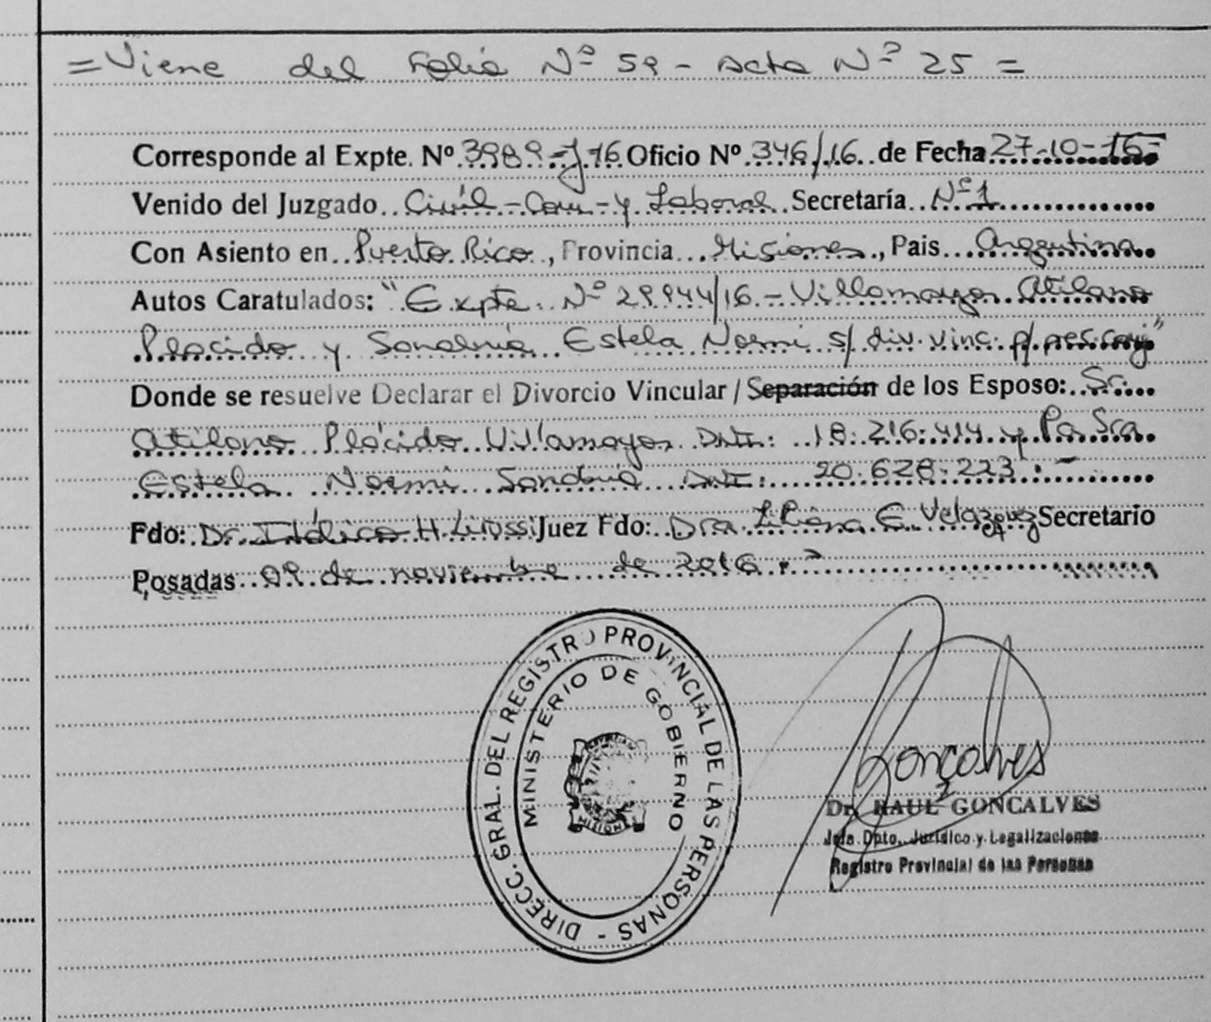 = Viene del Folio Nº 59 - Acta Nº 25 =
Corresponde al Expte. Nº 3989-J-16 Oficio Nº 346/16 de Fecha 27-10-16-
Venido del Juzgado Civil-Com-y Laboral Secretaría Nº1
Con Asiento en Puerto Rico, Provincia Misiones, Pais Argentina
Autos Caratulados: "Expte. Nº 29944/16.- Villamayor Atilano
Placido y Sanabria Estela Noemi s/ div. vinc. p/ pres. conj"
Donde se resuelve Declarar el Divorcio Vincular / Separación de los Esposo: Sr.
Atilano Plácido Villamayor DNI: 18.216.414 y la Sra
Estela Noemi Sanabria DNI: 20.628.223.-
Fdo: Dr. H. Juez Fdo: Dra. E. Velazquez Secretario
Posadas 09 de noviembre de 2016.-
DIRECC. GRAL. DEL REGISTRO PROVINCIAL DE LAS PERSONAS -
MINISTERIO DE GOBIERNO
MISIONES
Goncalves
Dr. RAUL GONCALVES
Jefe Dpto. Jurídico y Legalizaciones
Registro Provincial de las Personas